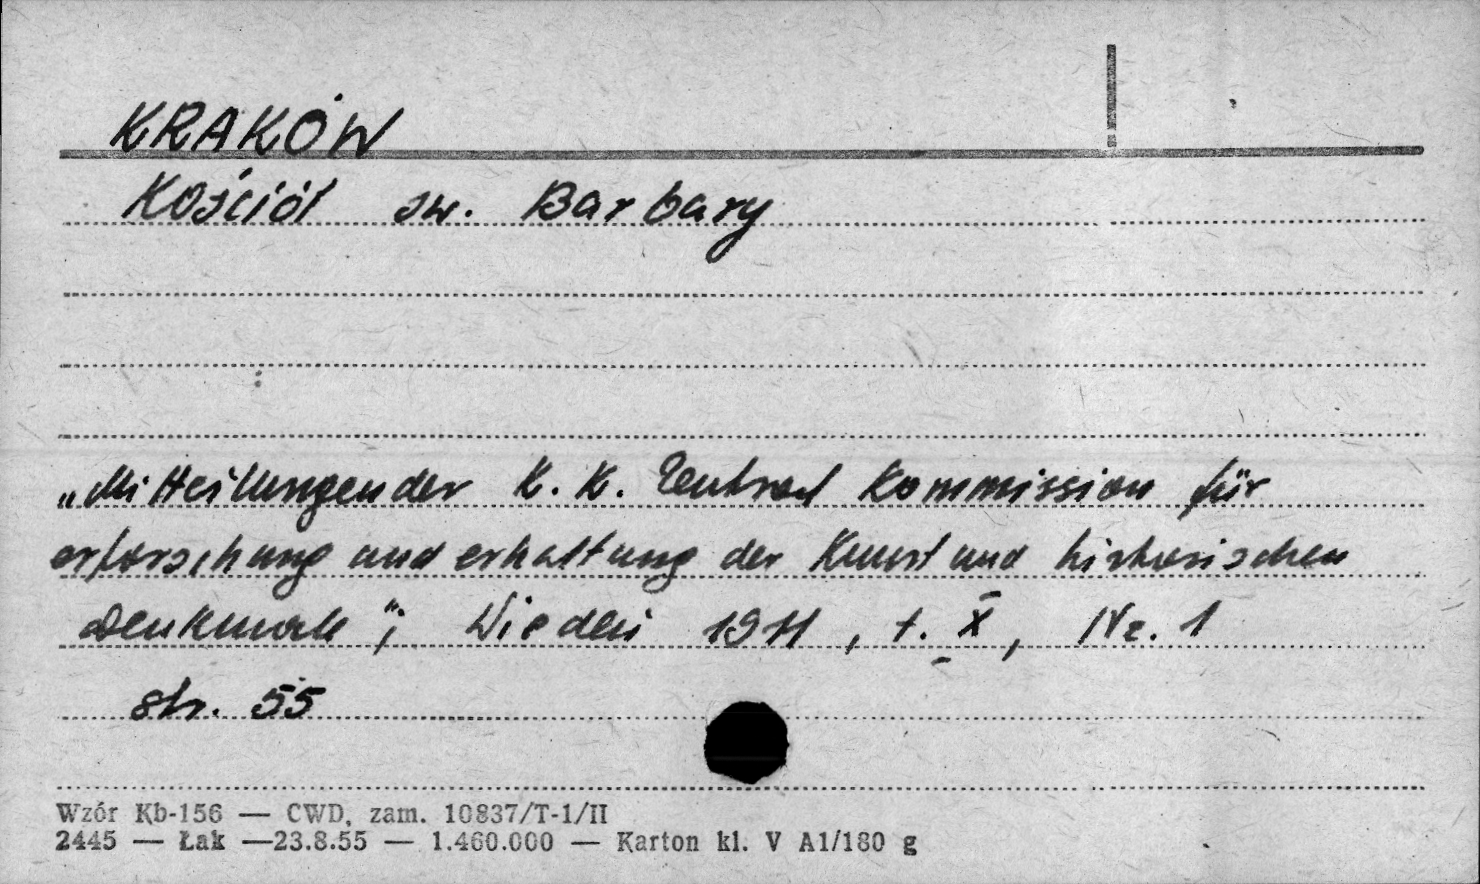 KRAKÓW
Kościół św. Barbary
„Mitteilungen der K. K. Zentral Kommission für
erforschung und erhaltung der Kunst und historischen
Denkmale"; Wiedeń 1911, t. X, Nr. 1
str. 55
Wzór Kb-156 — CWD, zam. 10837/T-1/II
2445 — Łak —23.8.55 — 1.460.000 — Karton kl. V A1/180 g